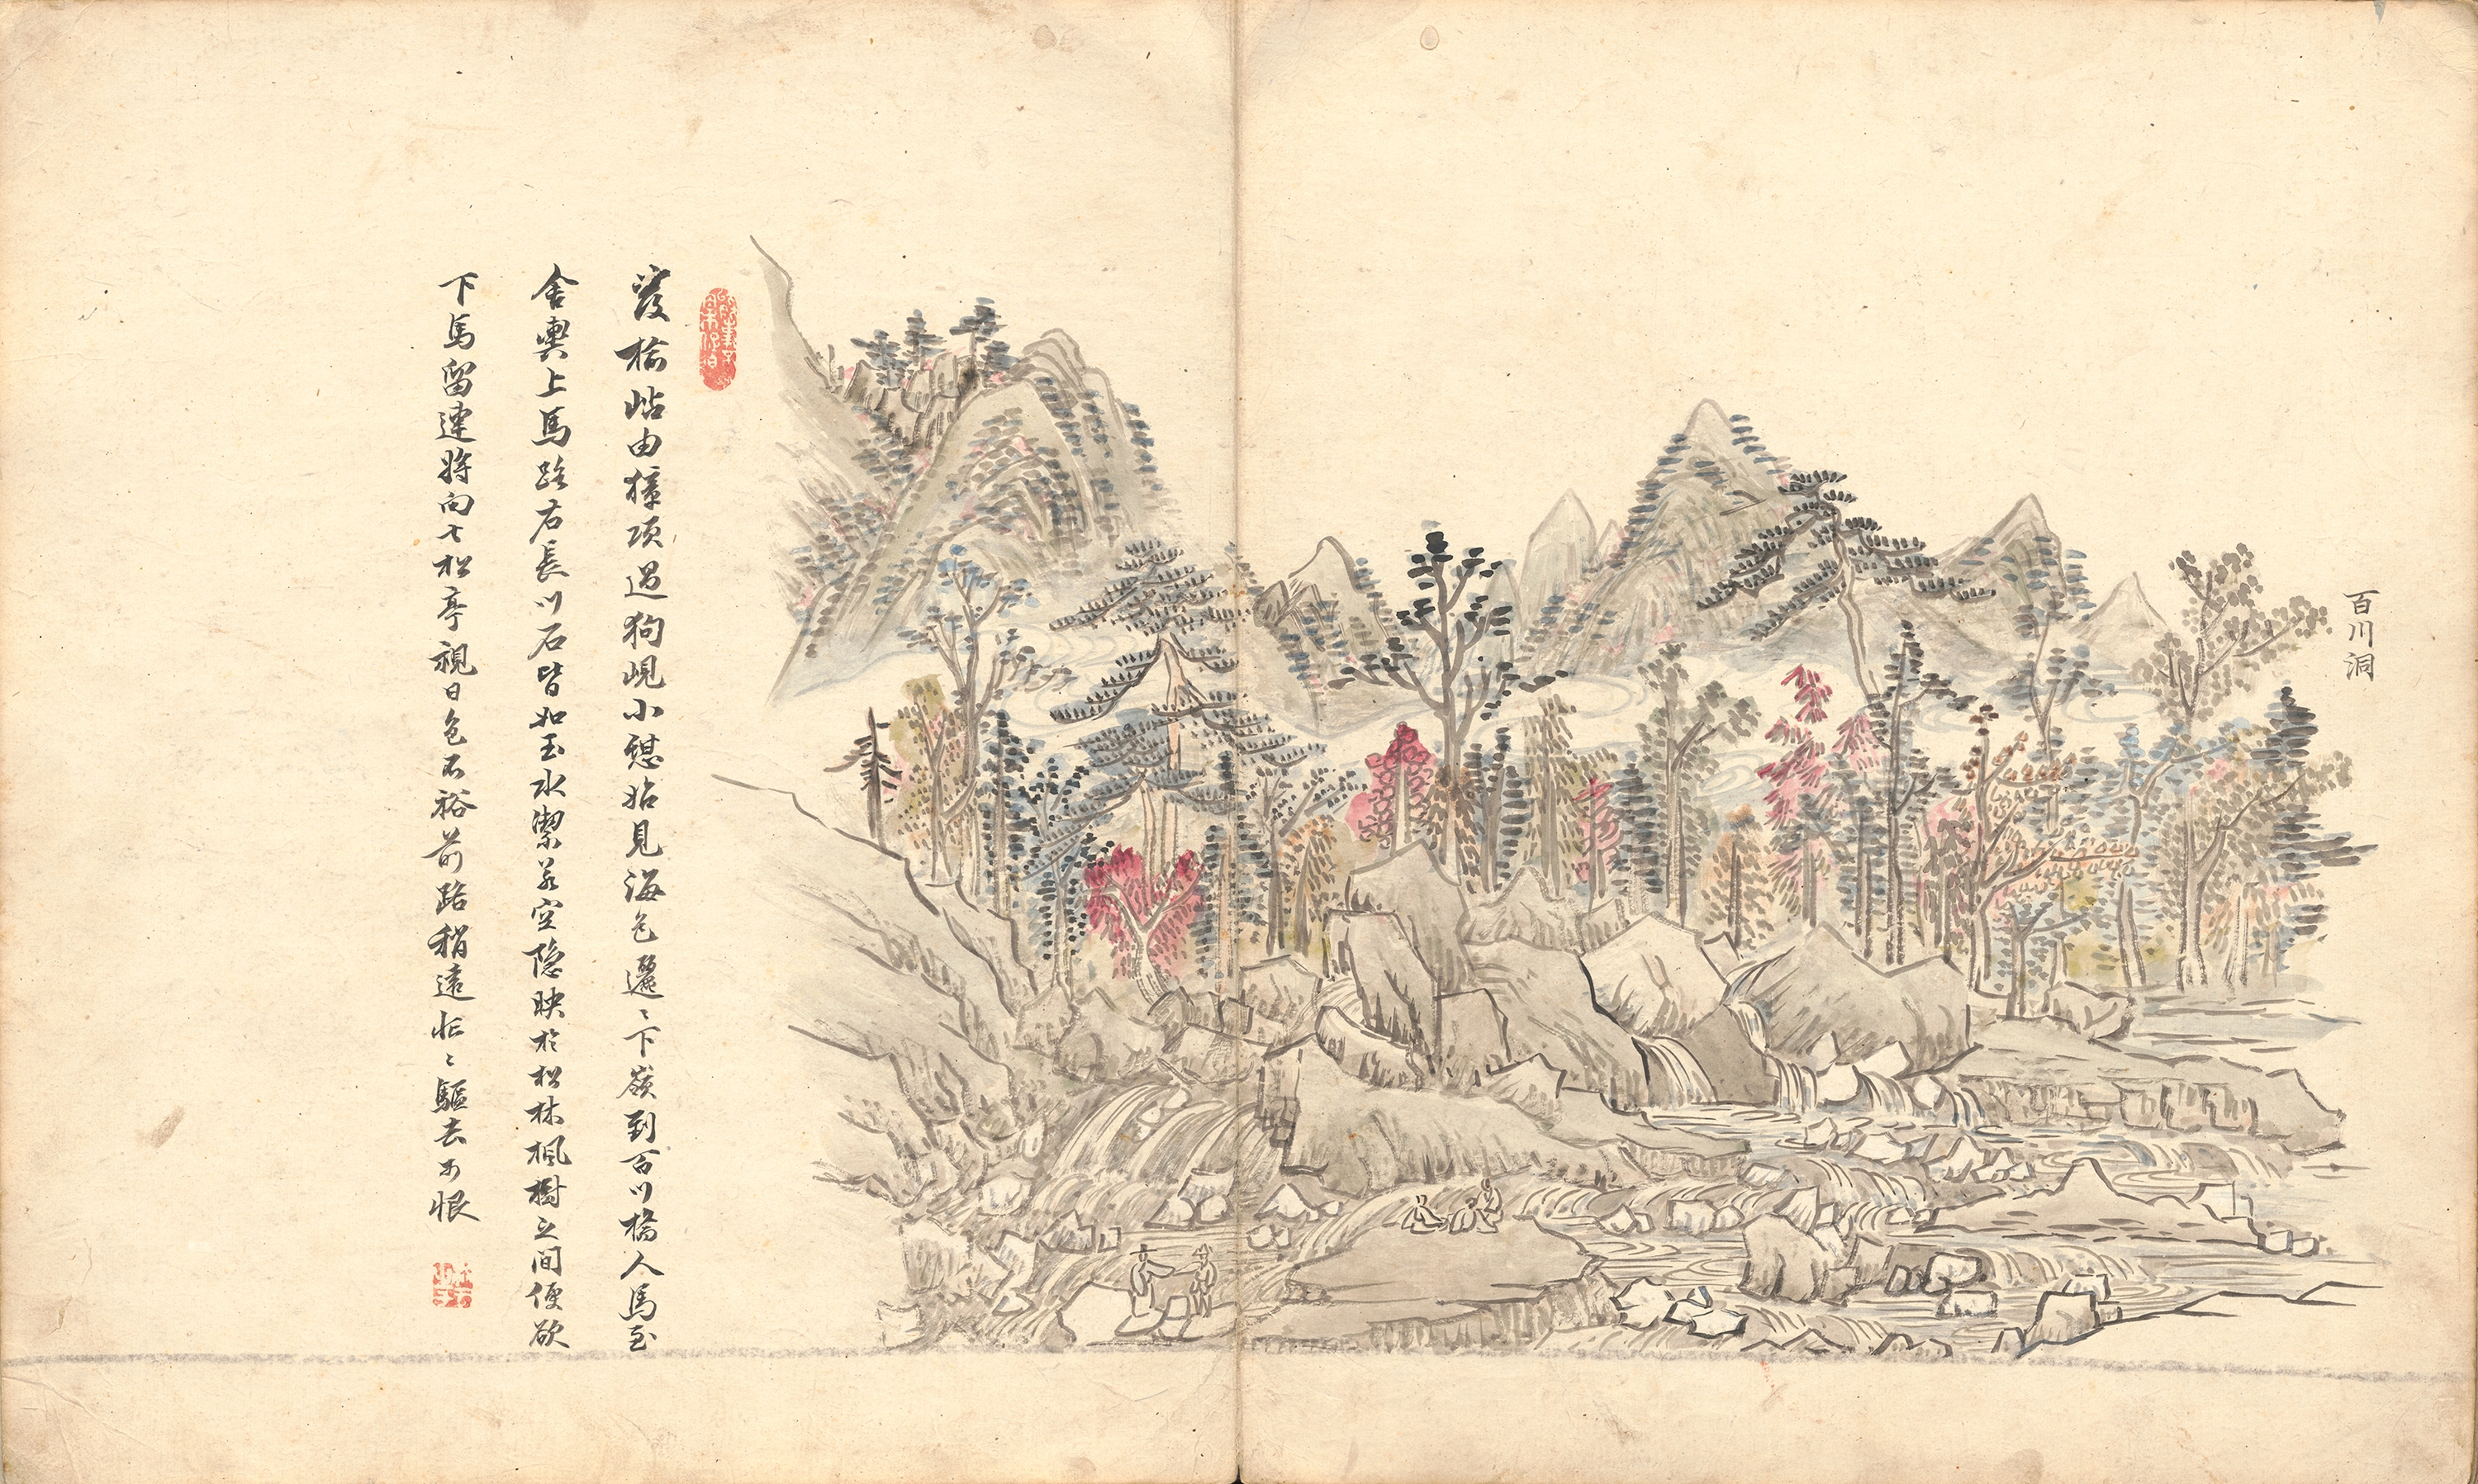 百川洞
發楡岾由獐項過狗峴小憩始見海色邐〻下嶺到百川橋人馬至
舍輿上馬路右長川石皆如玉水潔若空隐映於松林楓樹之間便欲
下馬留連將向七松亭視日色不裕前路稍遠忙〻驅去可恨